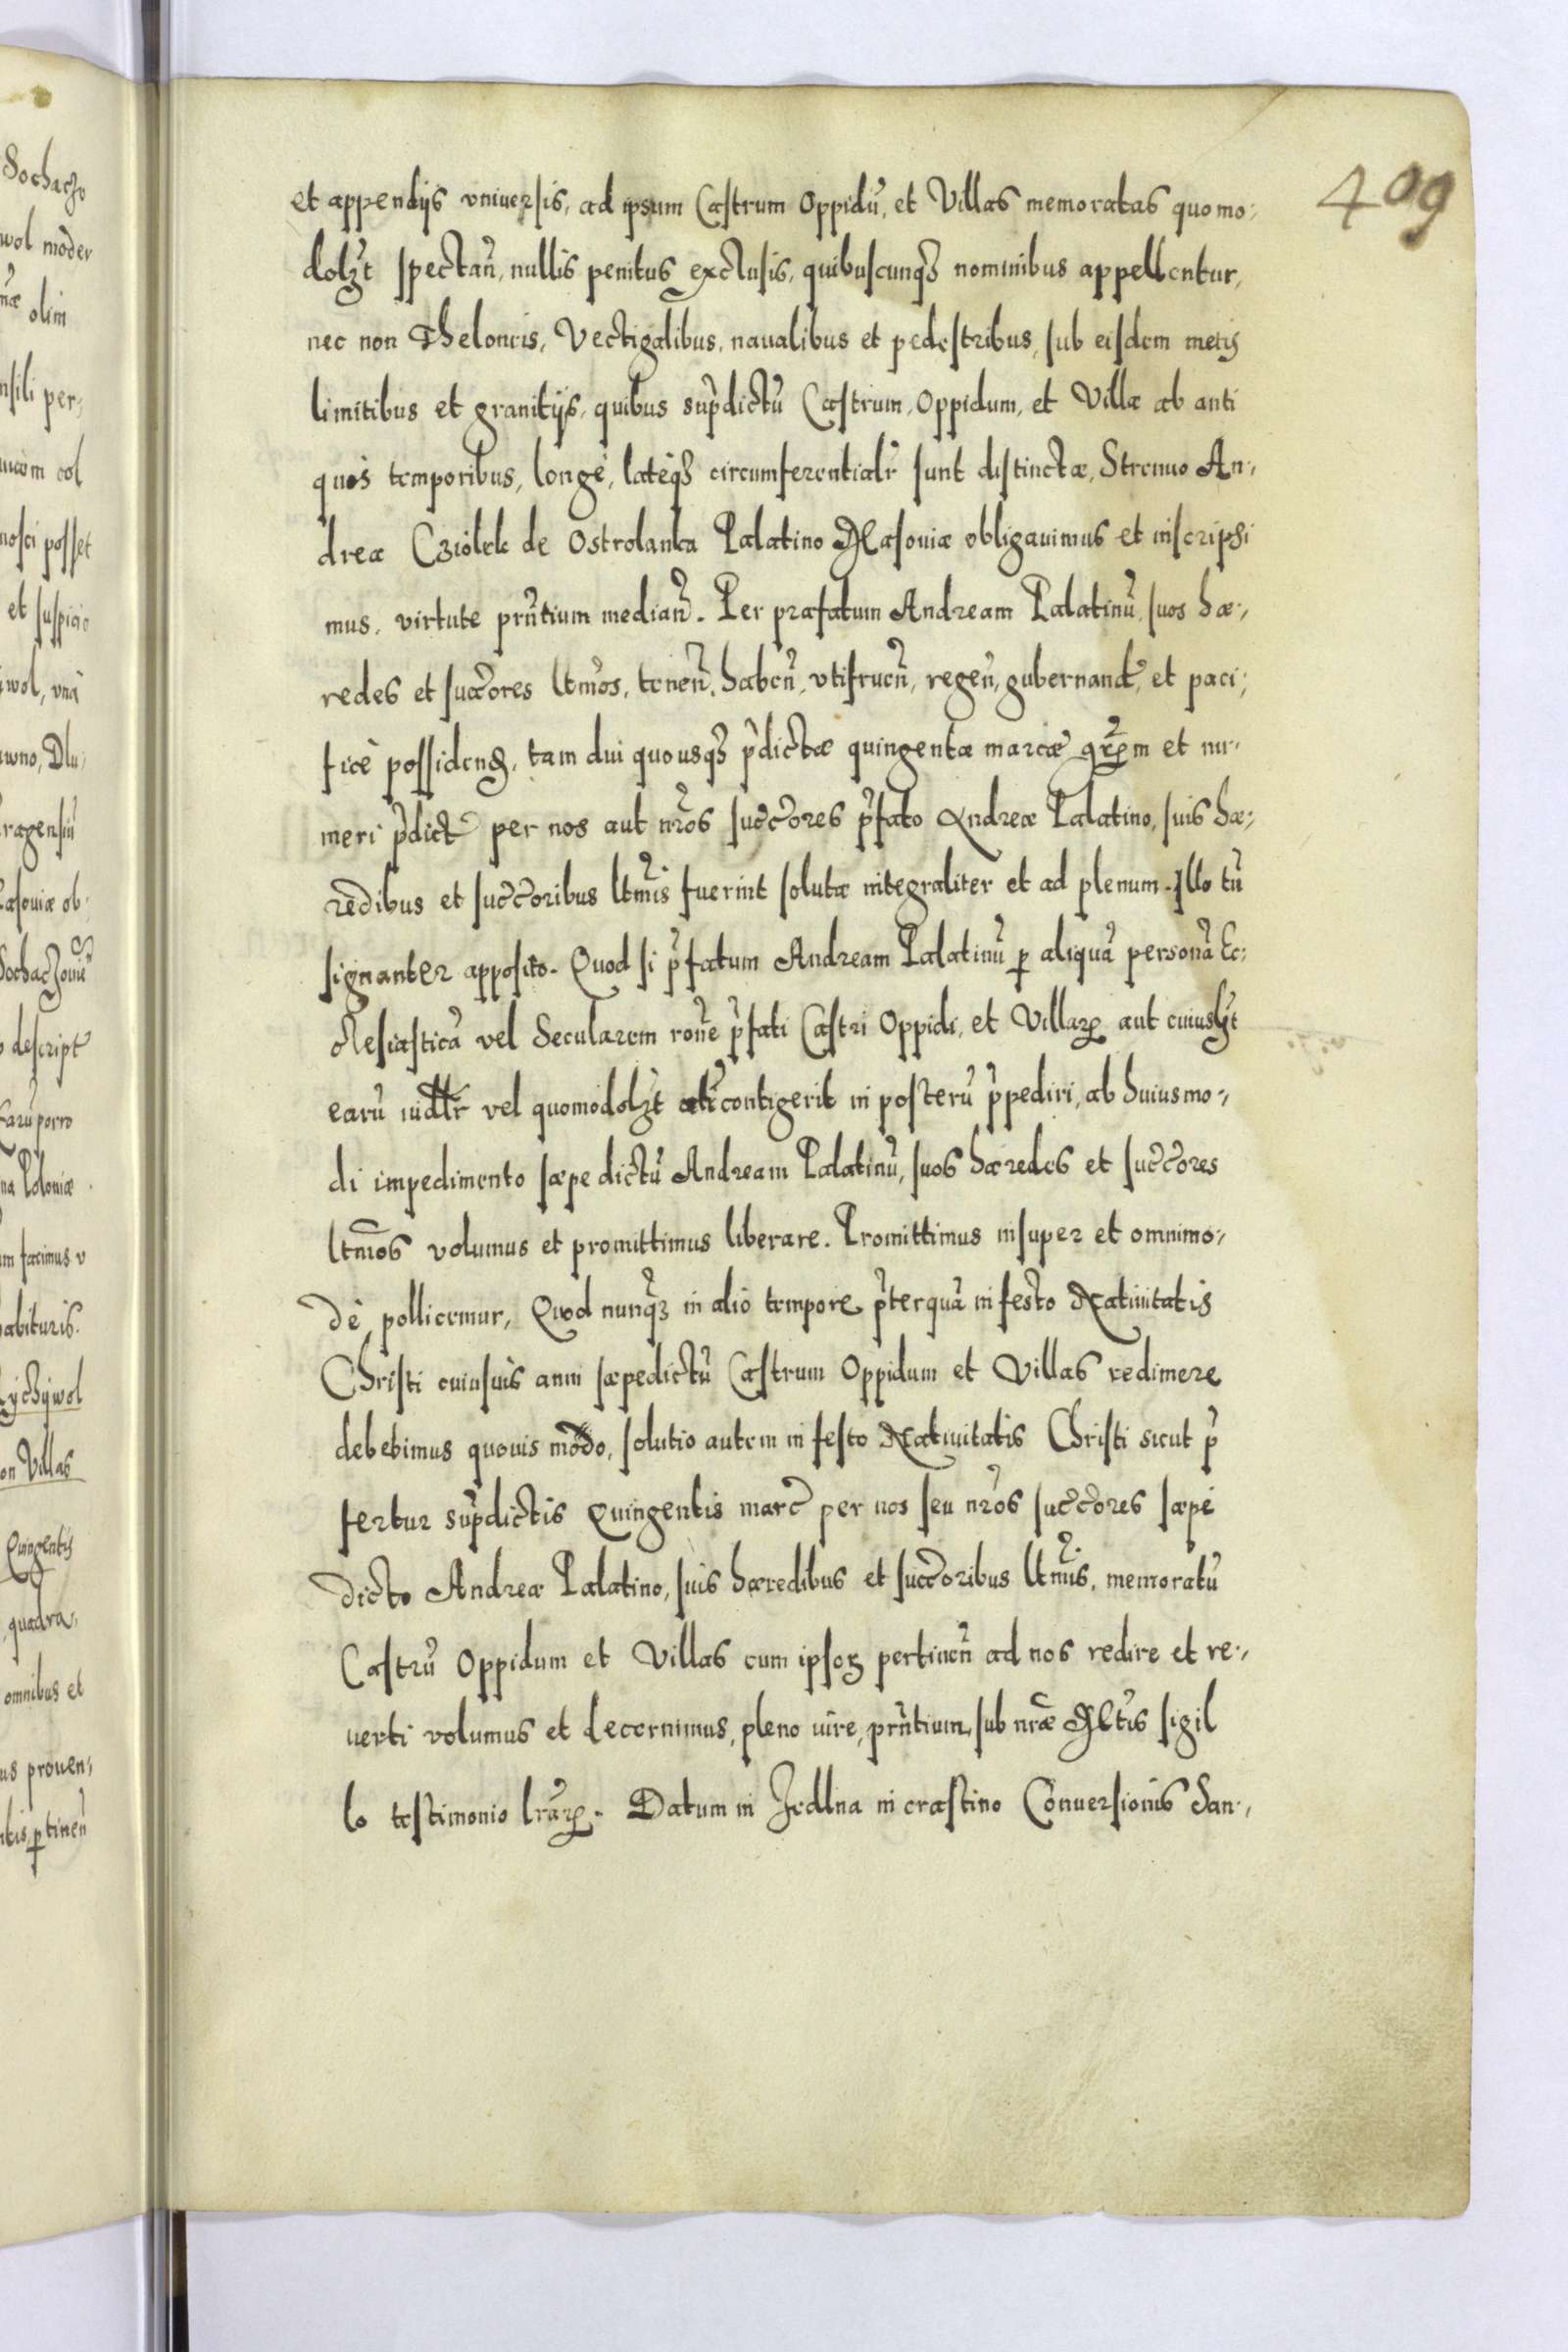 409
et appendijs vniuersis, ad ipsum Castrum Oppidũ, et Villas memoratas quomo-
dolꝫt spectañ, nullis penitus exclusis, quibuscunqꝫ nominibus appellentur,
nec non Theloneis, Vectigalibus, naualibus et pedestribus, sub eisdem metis
limitibus et granitijs, quibus sup̃dictũ Castrum, Oppidum, et Villæ ab anti
quis temporibus, longè, lateqꝫ circumferentialr̃ sunt distinctæ, Strenuo An-
dreæ Cziolek de Ostrolanka Palatino Masouiæ obligauimus et inscripsi
mus, virtute pñtium mediañ. Per præfatum Andream Palatinũ, suos hæ-
redes et succores ltmos, teneñ, habeñ, vtifrueñ, regeñ, gubernand, et paci-
ficè possidend, tam diu quousqꝫ p̃dictæ quingentæ marcæ m et nu-
meri p̃dict per nos aut nr̃os succores p̃fato Andreæ Palatino, suis hæ-
redibus et succoribus ltmis fuerint solutæ integraliter et ad plenum. Illo tñ
signanter apposito. Quod si p̃fatum Andream Palatinũ ꝑ aliquã personã Ec-
clesiasticã vel Secularem rone p̃fati Castri Oppidi, et Villarꝝ aut cuiuslꝫt
earũ iudlr̃ vel quomodolꝫt contigerit in posterũ p̃pediri, ab huiusmo-
di impedimento sæpe dictũ Andream Palatinũ, suos hæredes et succores
ltmos volumus et promittimus liberare. Promittimus insuper et omnimo-
dè pollicemur, Quod nunqꝫ in alio tempore p̃terquã in festo Natiuitatis
Christi cuiusuis anni sæpedictũ Castrum Oppidum et Villas redimere
debebimus quouis modo, solutio autem in festo Natiuitatis Christi sicut p̃
fertur sup̃dictis Quingentis marc per nos seu nr̃os succores sæpe
dicto Andreæ Palatino, suis hæredibus et succoribus ltmis, memoratũ
Castrũ Oppidum et Villas cum ipsoꝝ pertineñ ad nos redire et re-
uerti volumus et decernimus, pleno iure, pñtium, sub nræ Mtis sigil
lo testimonio lrarꝝ. Datum in Jedlna in crastino Conuersionis San-